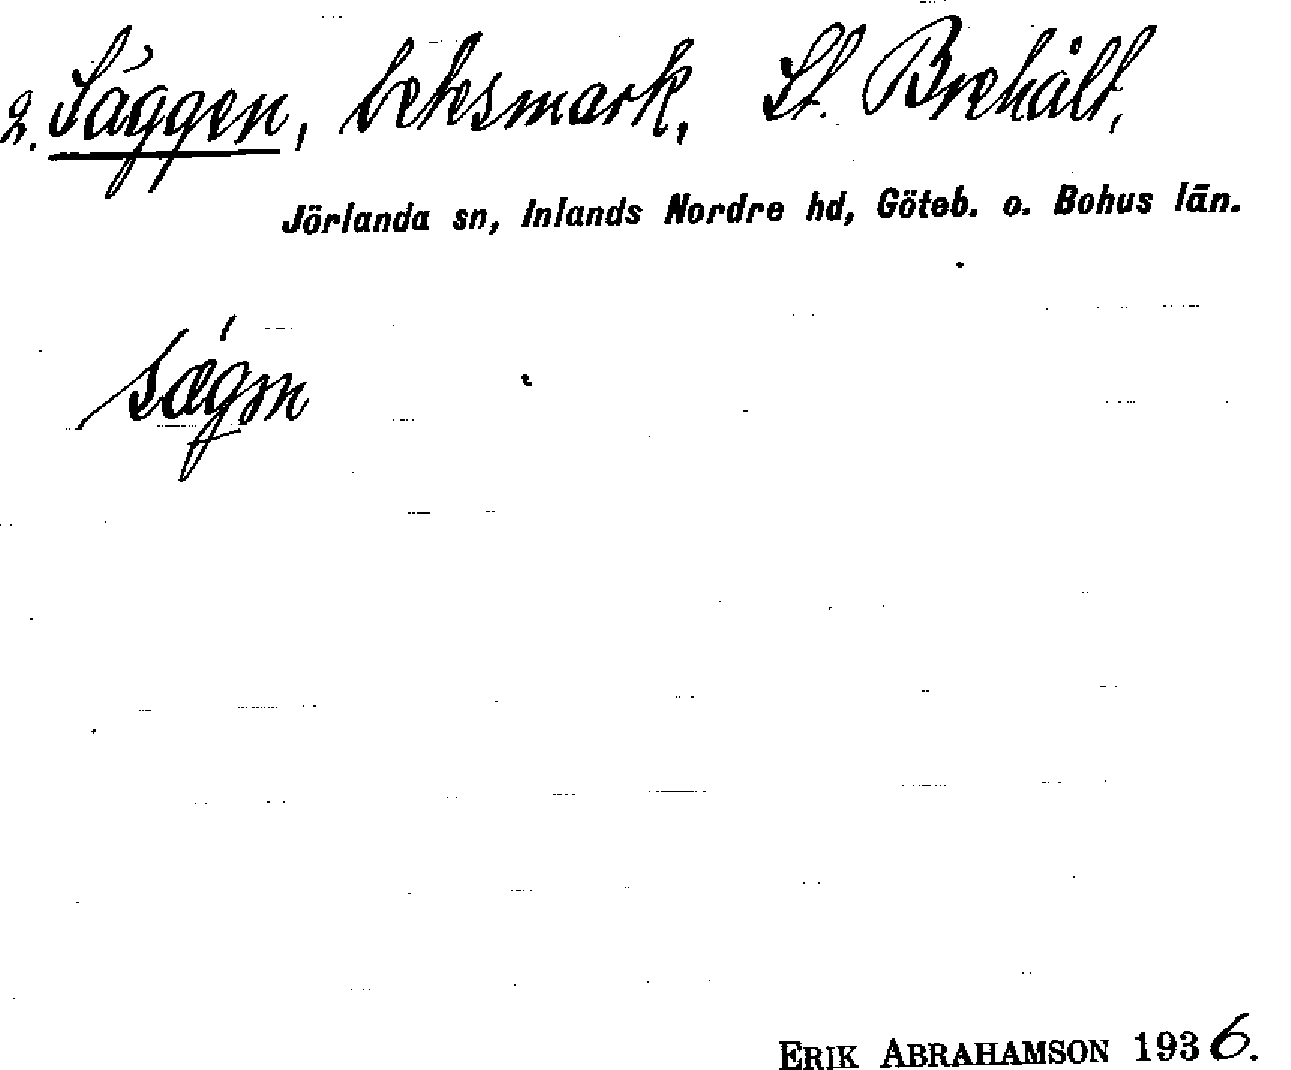 2. Säggen, betesmark, St. Brehält,
Jörlanda sn, Inlands Nordre hd, Göteb. o. Bohus län.
ERIK ABRAHAMSON 1936.